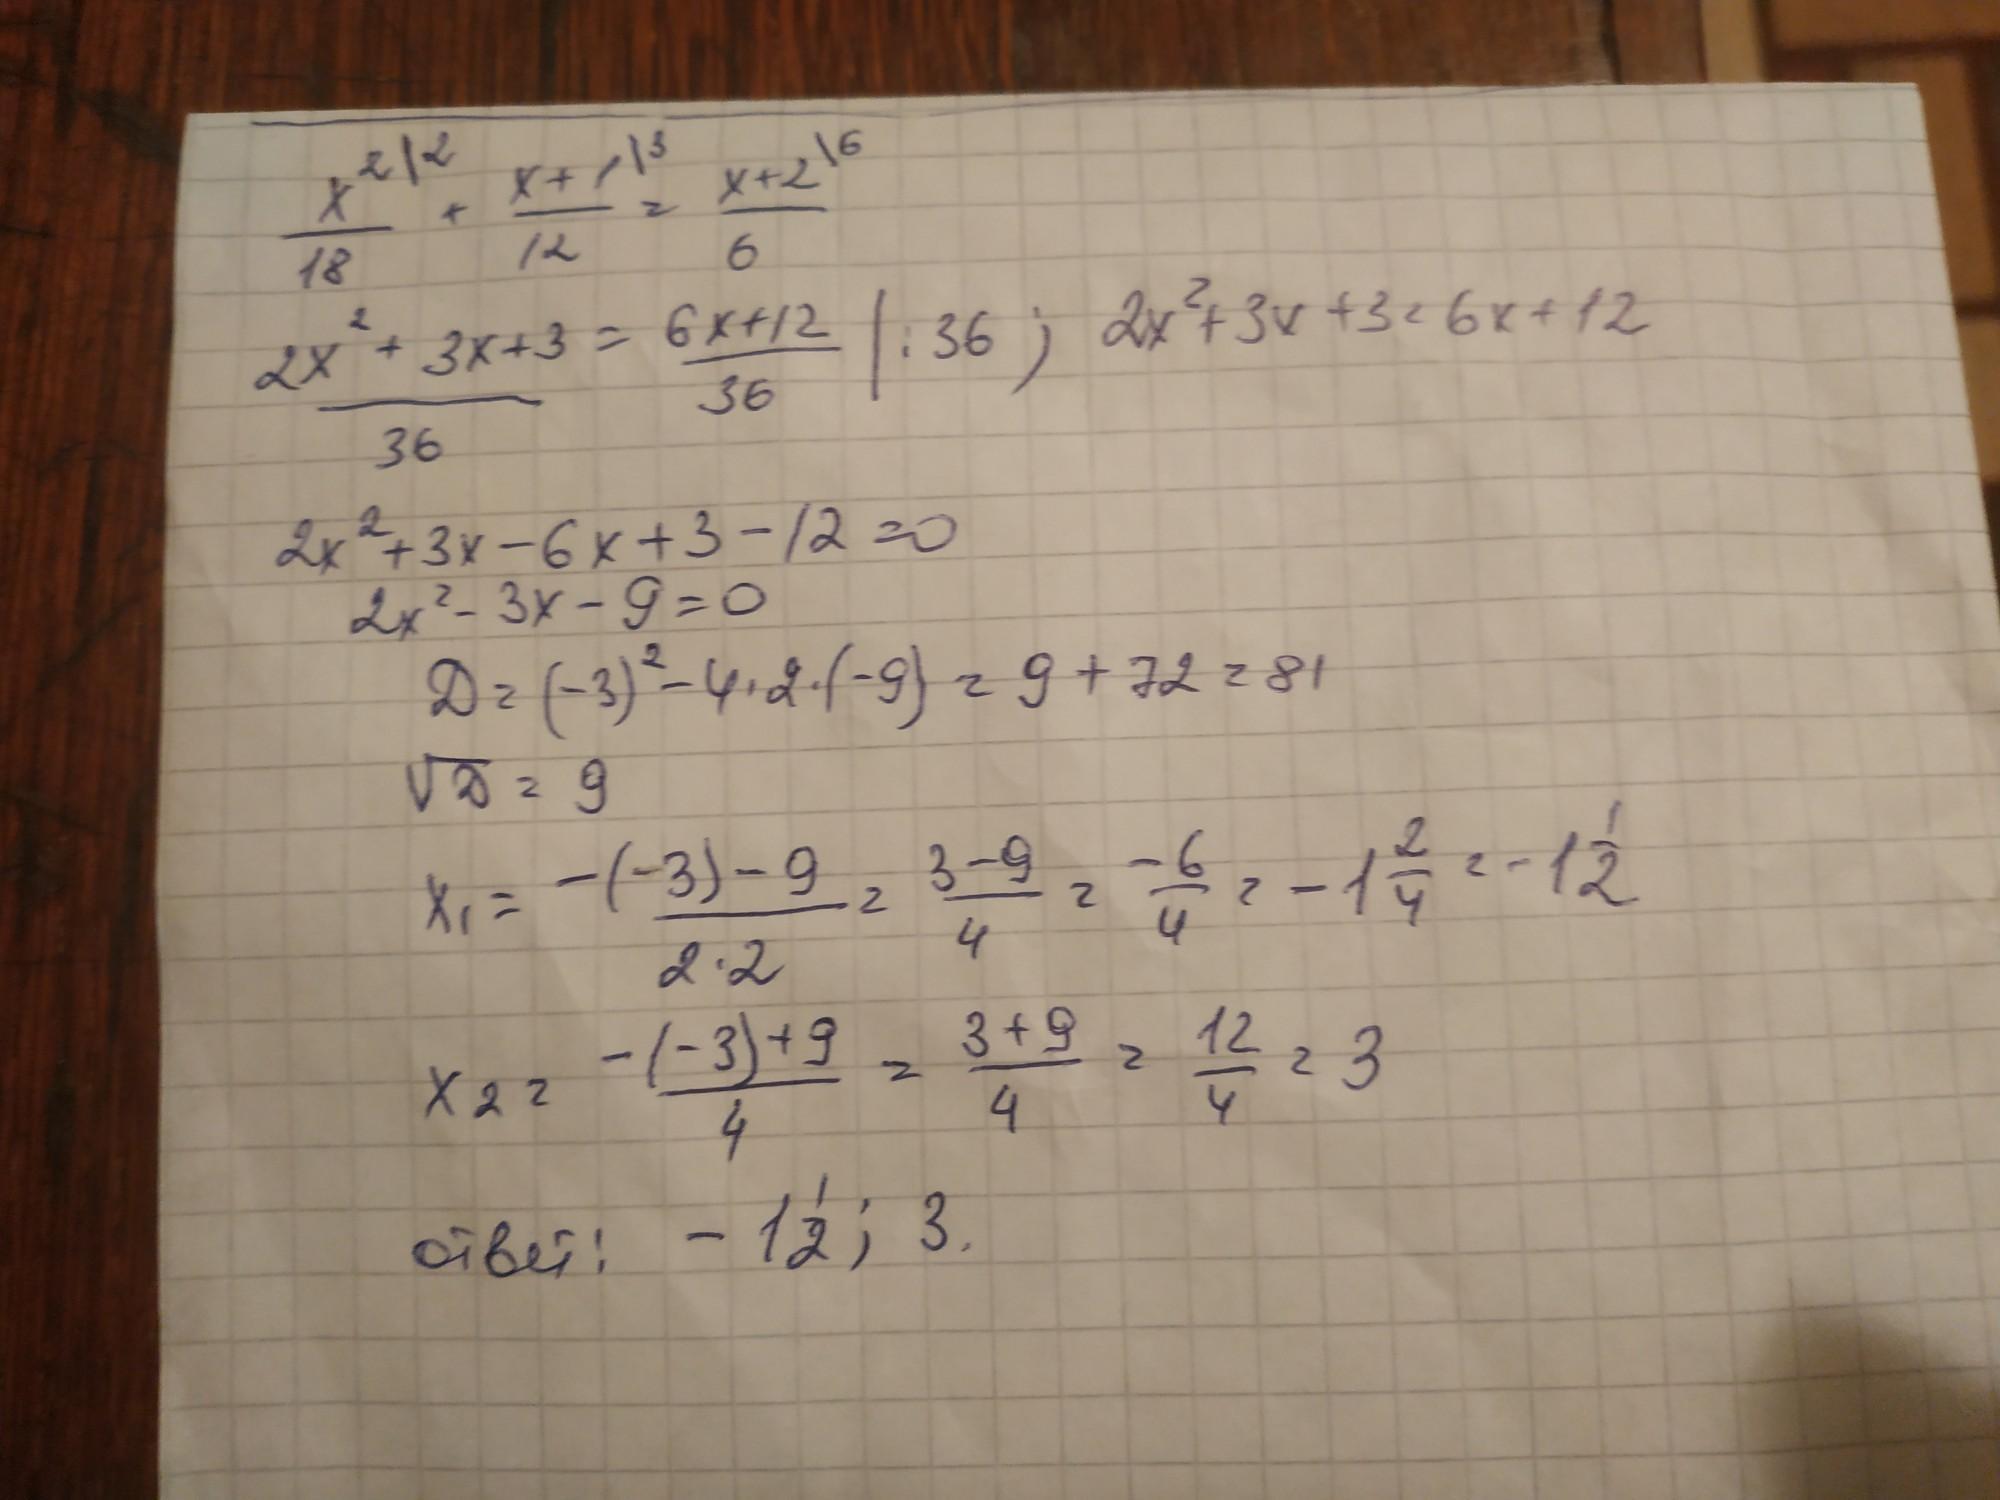 x²\2/18 + x+1\3/12 = x+2\6/6
2x² + 3x+3/36 = 6x+12/36 |:36; 2x²+3x+3=6x+12
2x²+3x-6x+3-12=0
2x²-3x-9=0
D=(-3)²-4·2·(-9)=9+72=81
√D=9
x₁= -(-3)-9/2·2 = 3-9/4 = -6/4 = -1 2/4 = -1 1/2
x₂= -(-3)+9/4 = 3+9/4 = 12/4 = 3
ответ: -1 1/2; 3.